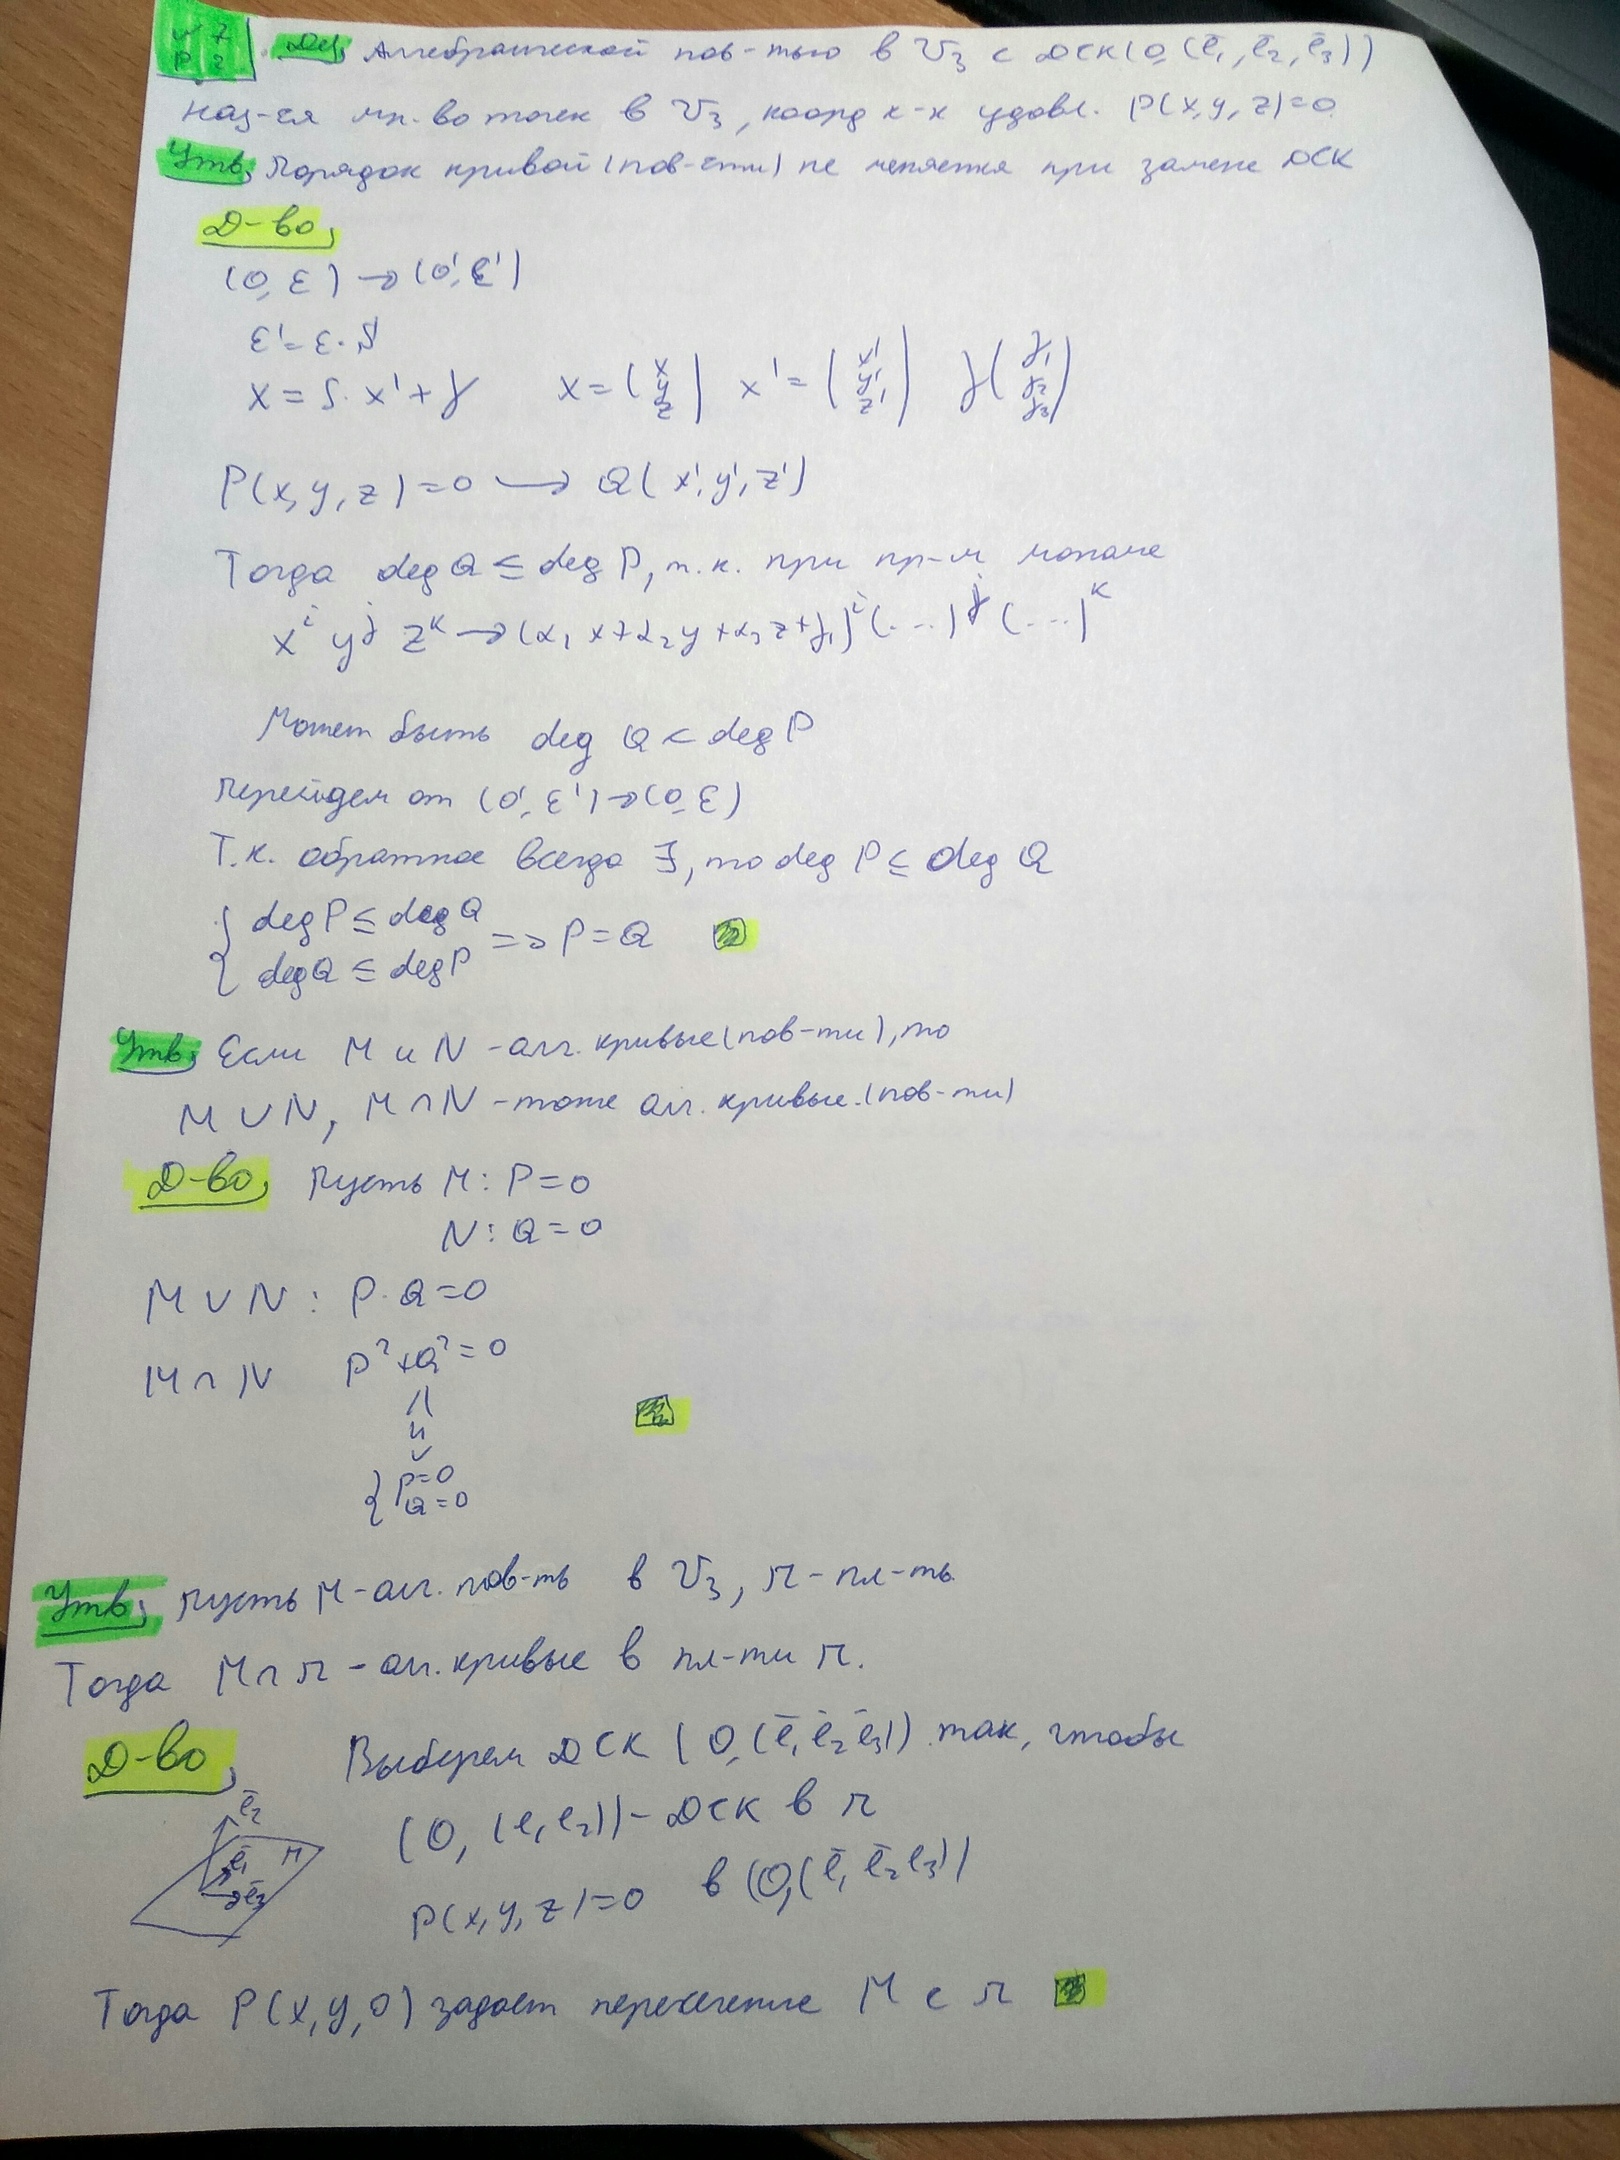 Def, Алгебраической пов-тью в V₃ с ДСК(O, (ē₁, ē₂, ē₃))
наз-ся мн-во точек в V₃, коорд к-х удовл. P(x, y, z)=0.
Утв, Порядок кривой (пов-сти) не меняется при замене ДСК
Д-во,
(O, ε) → (O', ε')
ε' = ε · S
X = S · X' + γ    X = (x y z)    X' = (x' y' z')    γ (γ₁ γ₂ γ₃)
P(x, y, z) = 0 → Q(x', y', z')
Тогда deg Q ≤ deg P, т.к. при пр-м
xⁱ yʲ zᵏ → (α₁ x + α₂ y + α₃ z + γ₁)ⁱ (...)ʲ (...)ᵏ
Может быть deg Q < deg P
Перейдем от (O', ε') → (O, ε)
Т.к. обратное всегда ∃, то deg P ≤ deg Q
{ deg P ≤ deg Q
{ deg Q ≤ deg P => P = Q
Утв, Если M и N - алг. кривые (пов-ти), то
M ∪ N, M ∩ N - тоже алг. кривые. (пов-ти)
Д-во, Пусть M: P = 0
N: Q = 0
M ∪ N : P · Q = 0
M ∩ N P² + Q² = 0
{ P = 0
Q = 0
Утв, Пусть M - алг. пов-ть в V₃, π - пл-ть.
Тогда M ∩ π - алг. кривые в пл-ти π.
Д-во, Выберем ДСК (O, (ē₁ ē₂ ē₃)) так, чтобы
(O, (e₁ e₂)) - ДСК в π
ē₂
ē₁ π
ē₃
P(x, y, z) = 0 в (O, (ē₁ ē₂ e₃))
Тогда P(x, y, 0) задает пересечение M с π